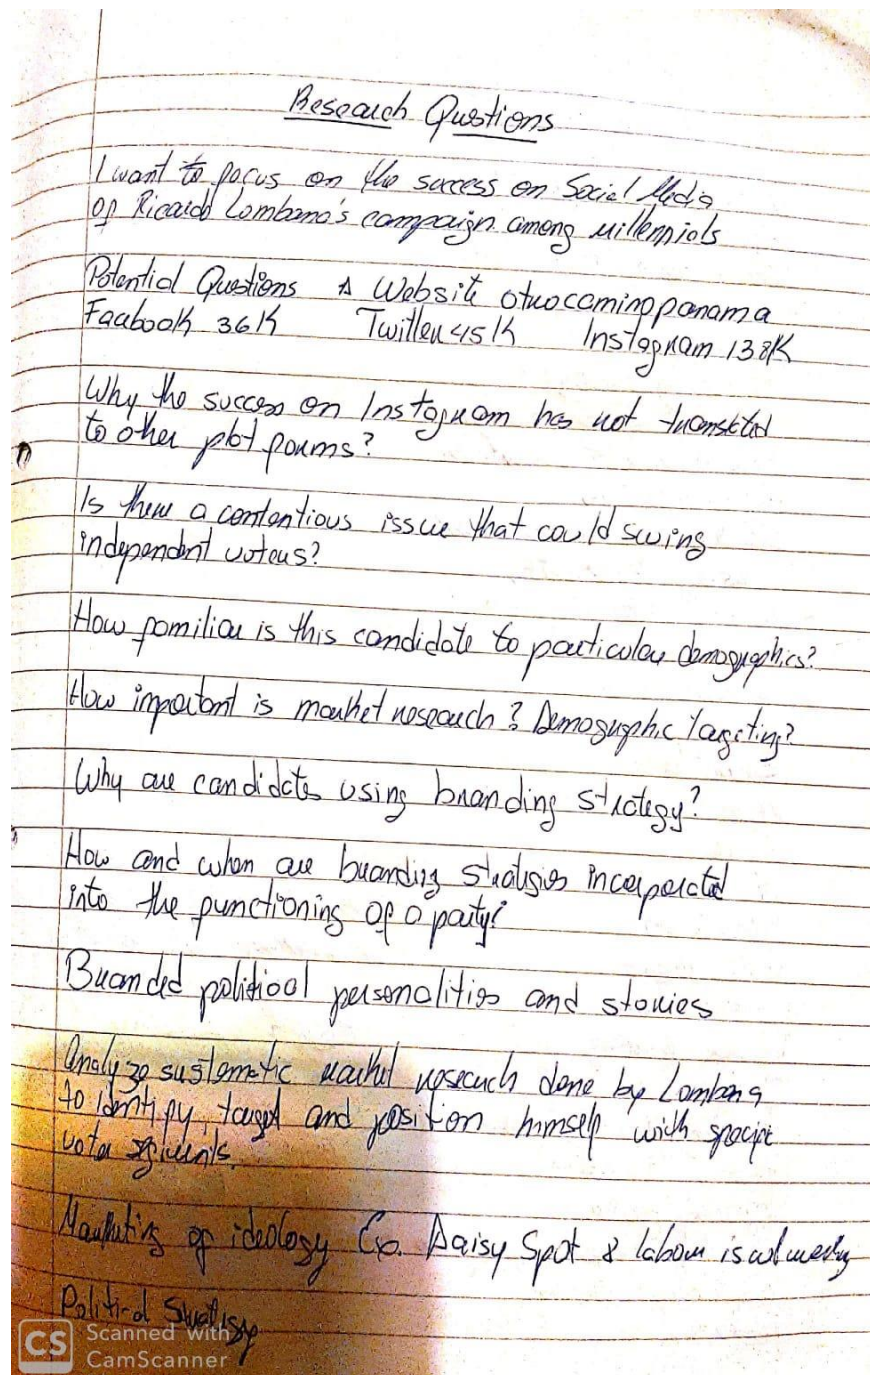 Research Questions
I want to focus on the success on Social Media
of Ricardo Lombana's campaign among millennials
Potential Questions Website otrocaminopanama
Facebook 36K Twitter 45K Instagram 138K
Why the success on Instagram has not translated
to other platforms?
Is there a contentious issue that could swing
independent voters?
How familiar is this candidate to particular demographics?
How important is market research? Demographic Targeting?
Why are candidates using branding strategy?
How and when are branding strategies incorporated
into the functioning of a party?
Branded political personalities and stories
Analyze systematic market research done by Lombana
to identify, target and position himself with specific
voter segments.
Marketing of ideology Ex. Daisy Spot & labour is
Political Strategy
CS Scanned with
CamScanner